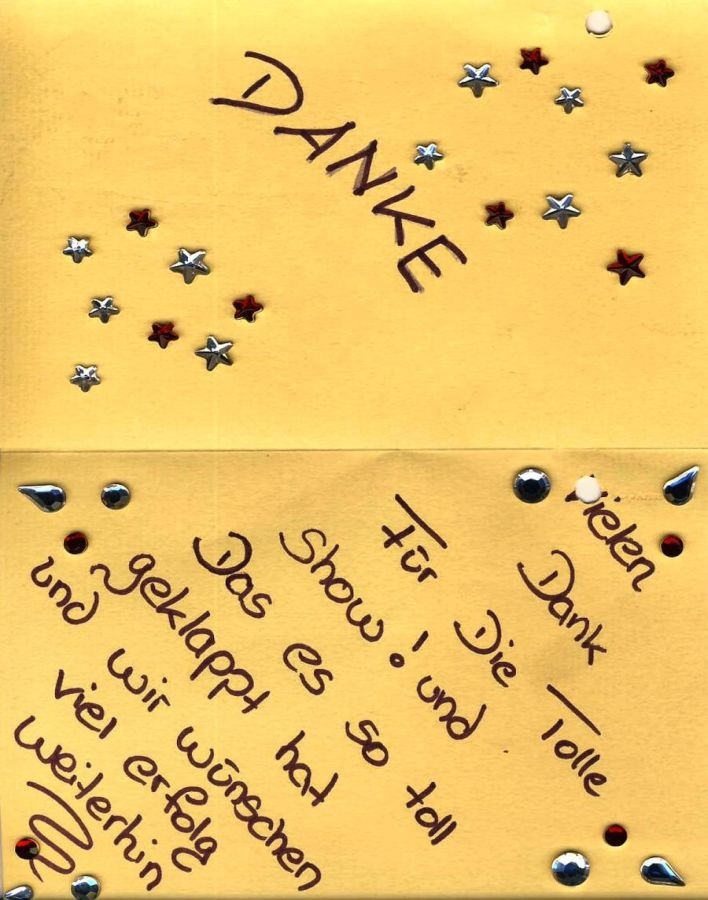 DANKE
Vielen
Dank
Für Die Tolle
Show! und
Das es so toll
geklappt hat
und wir wünschen
viel erfolg
weiterhin